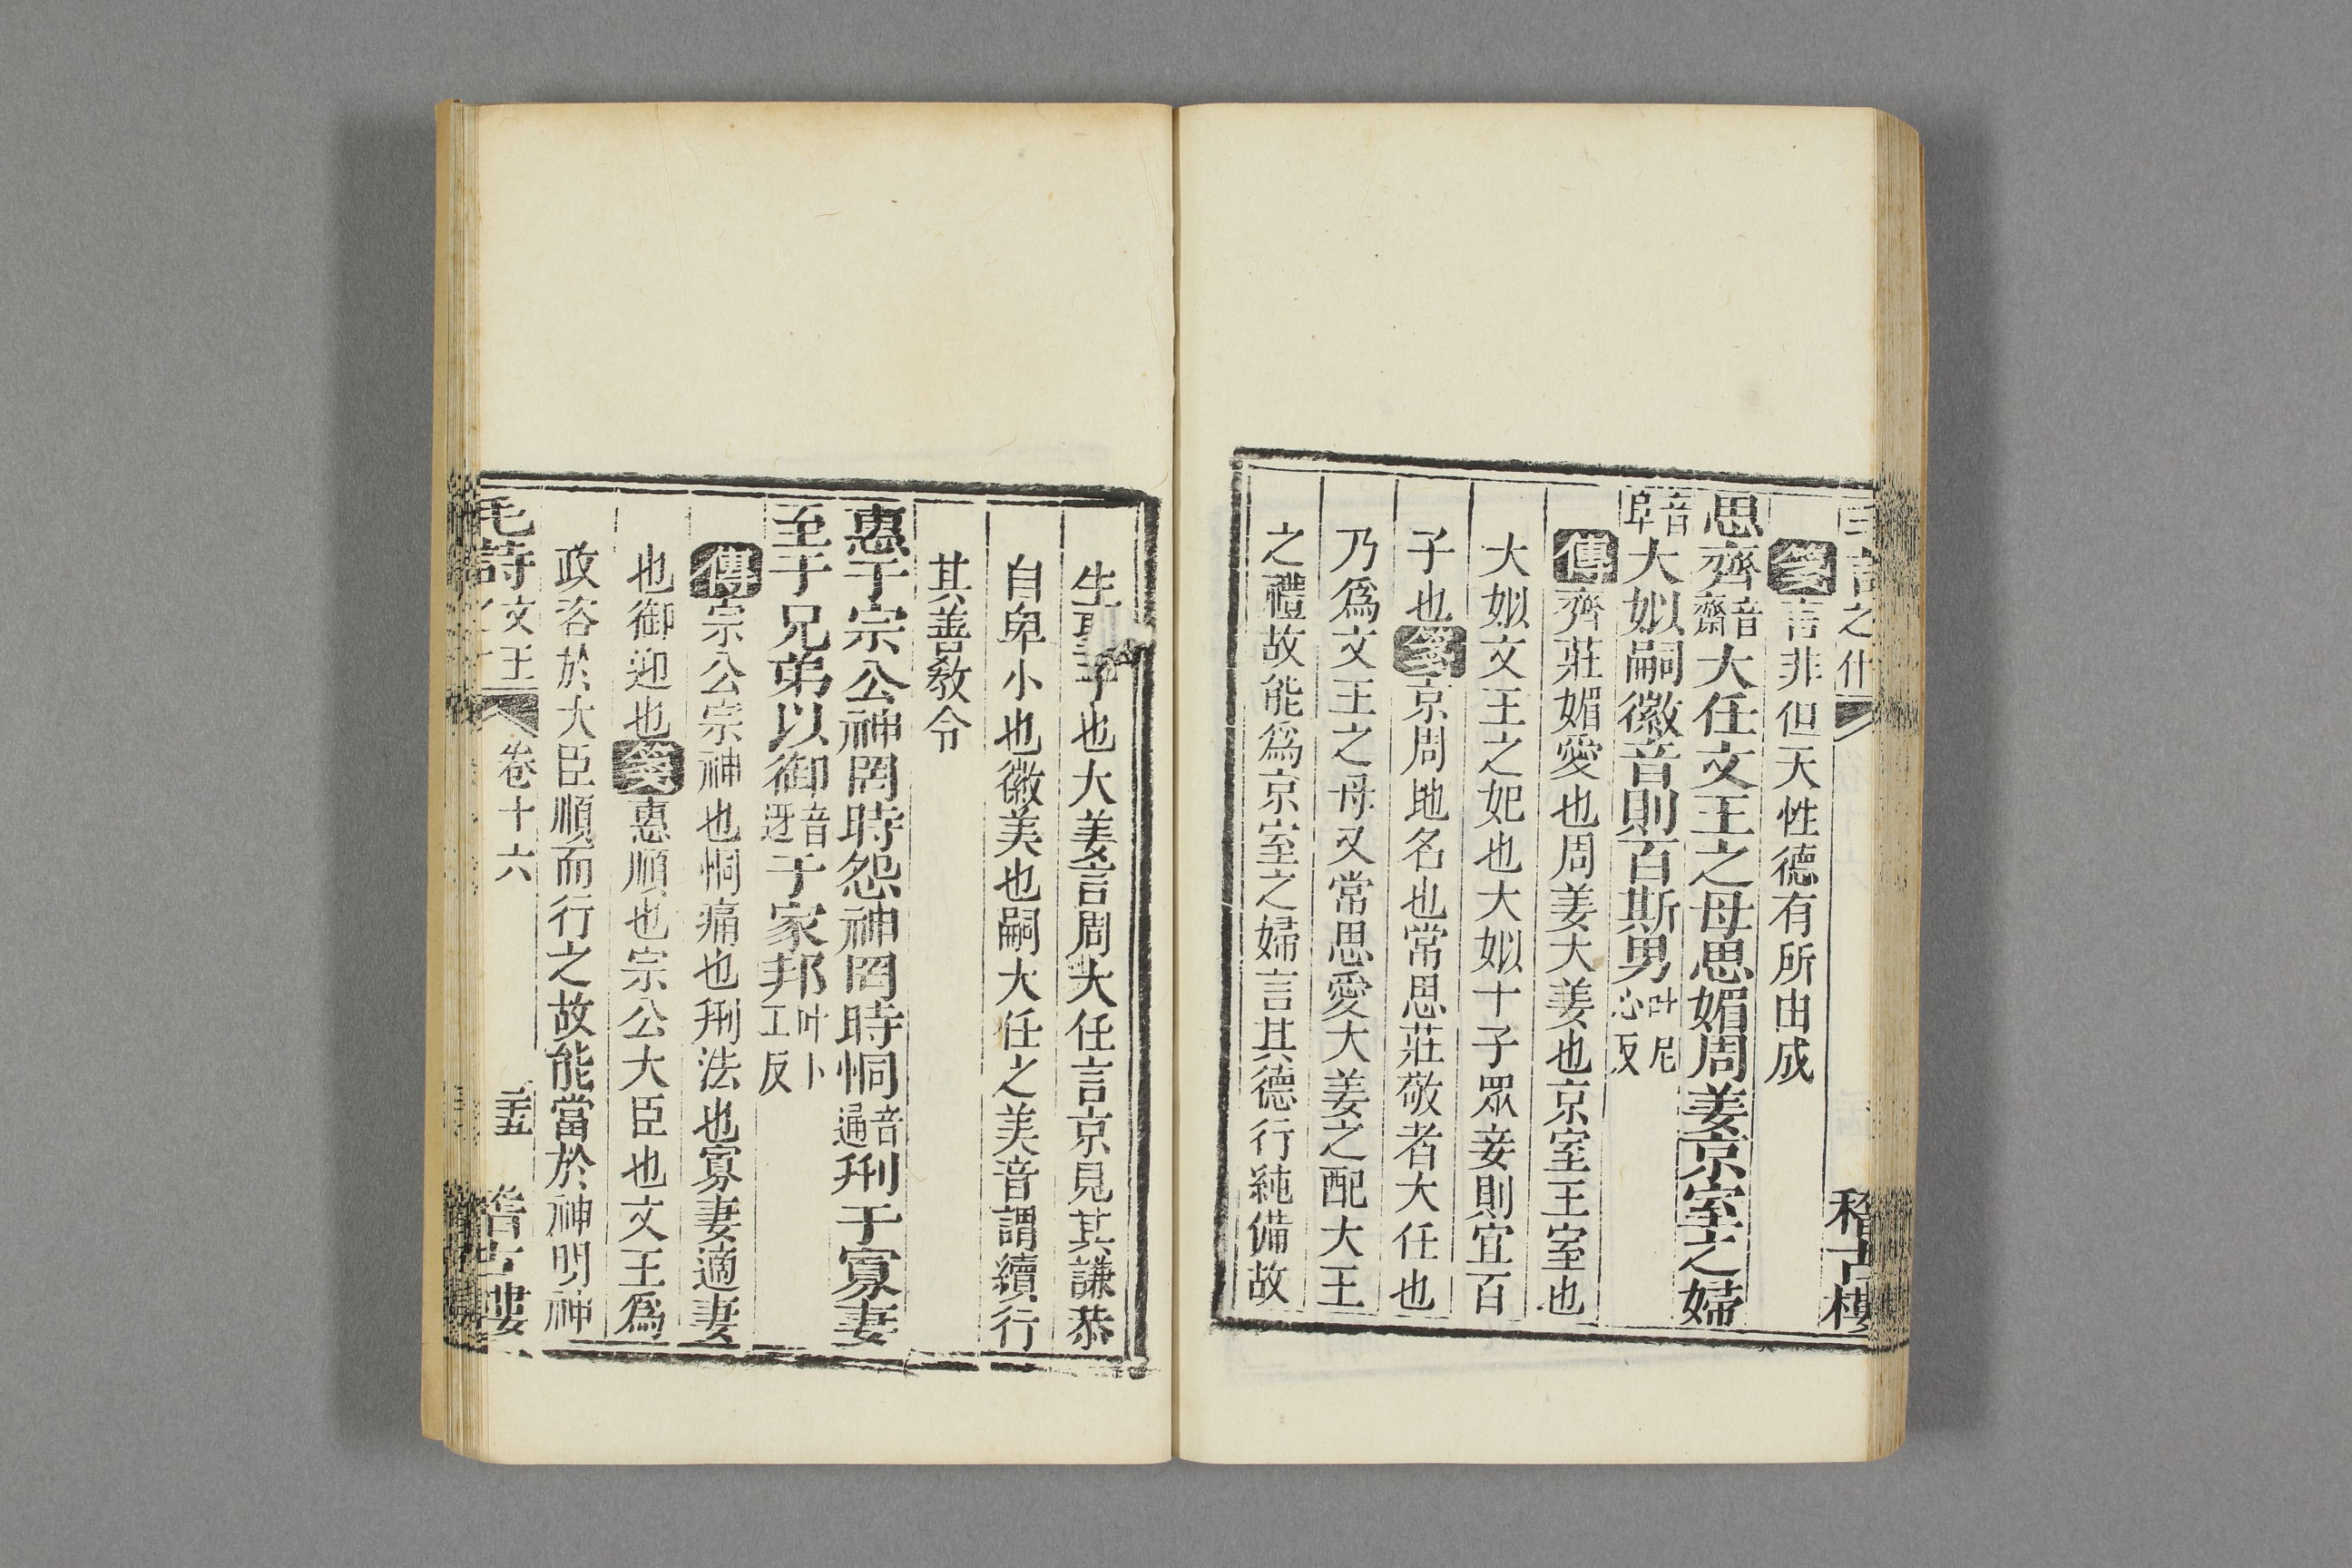 毛詩之什 稽古樓
箋言非但天性德有所由成
思齊音齋大任文王之母思媚周姜京室之婦
音阜大姒嗣徽音則百斯男叶尼心反
傳齊莊媚愛也周姜大姜也京室王室也
大姒文王之妃也大姒十子眾妾則宜百
子也箋京周地名也常思莊敬者大任也
乃爲文王之母又常思愛大姜之配大王
之禮故能爲京室之婦言其德行純備故
生聖子也大姜言周大任言京見其謙恭
自卑小也徽美也嗣大任之美音謂續行
其善教令
惠于宗公神罔時怨神罔時恫音通刑于寡妻
至于兄弟以御音迓于家邦叶卜工反
傳宗公宗神也恫痛也刑法也寡妻適妻
也御迎也箋惠順也宗公大臣也文王爲
政咨於大臣順而行之故能當於神明神
毛詩 文王之什 卷十六 壵 稽古樓